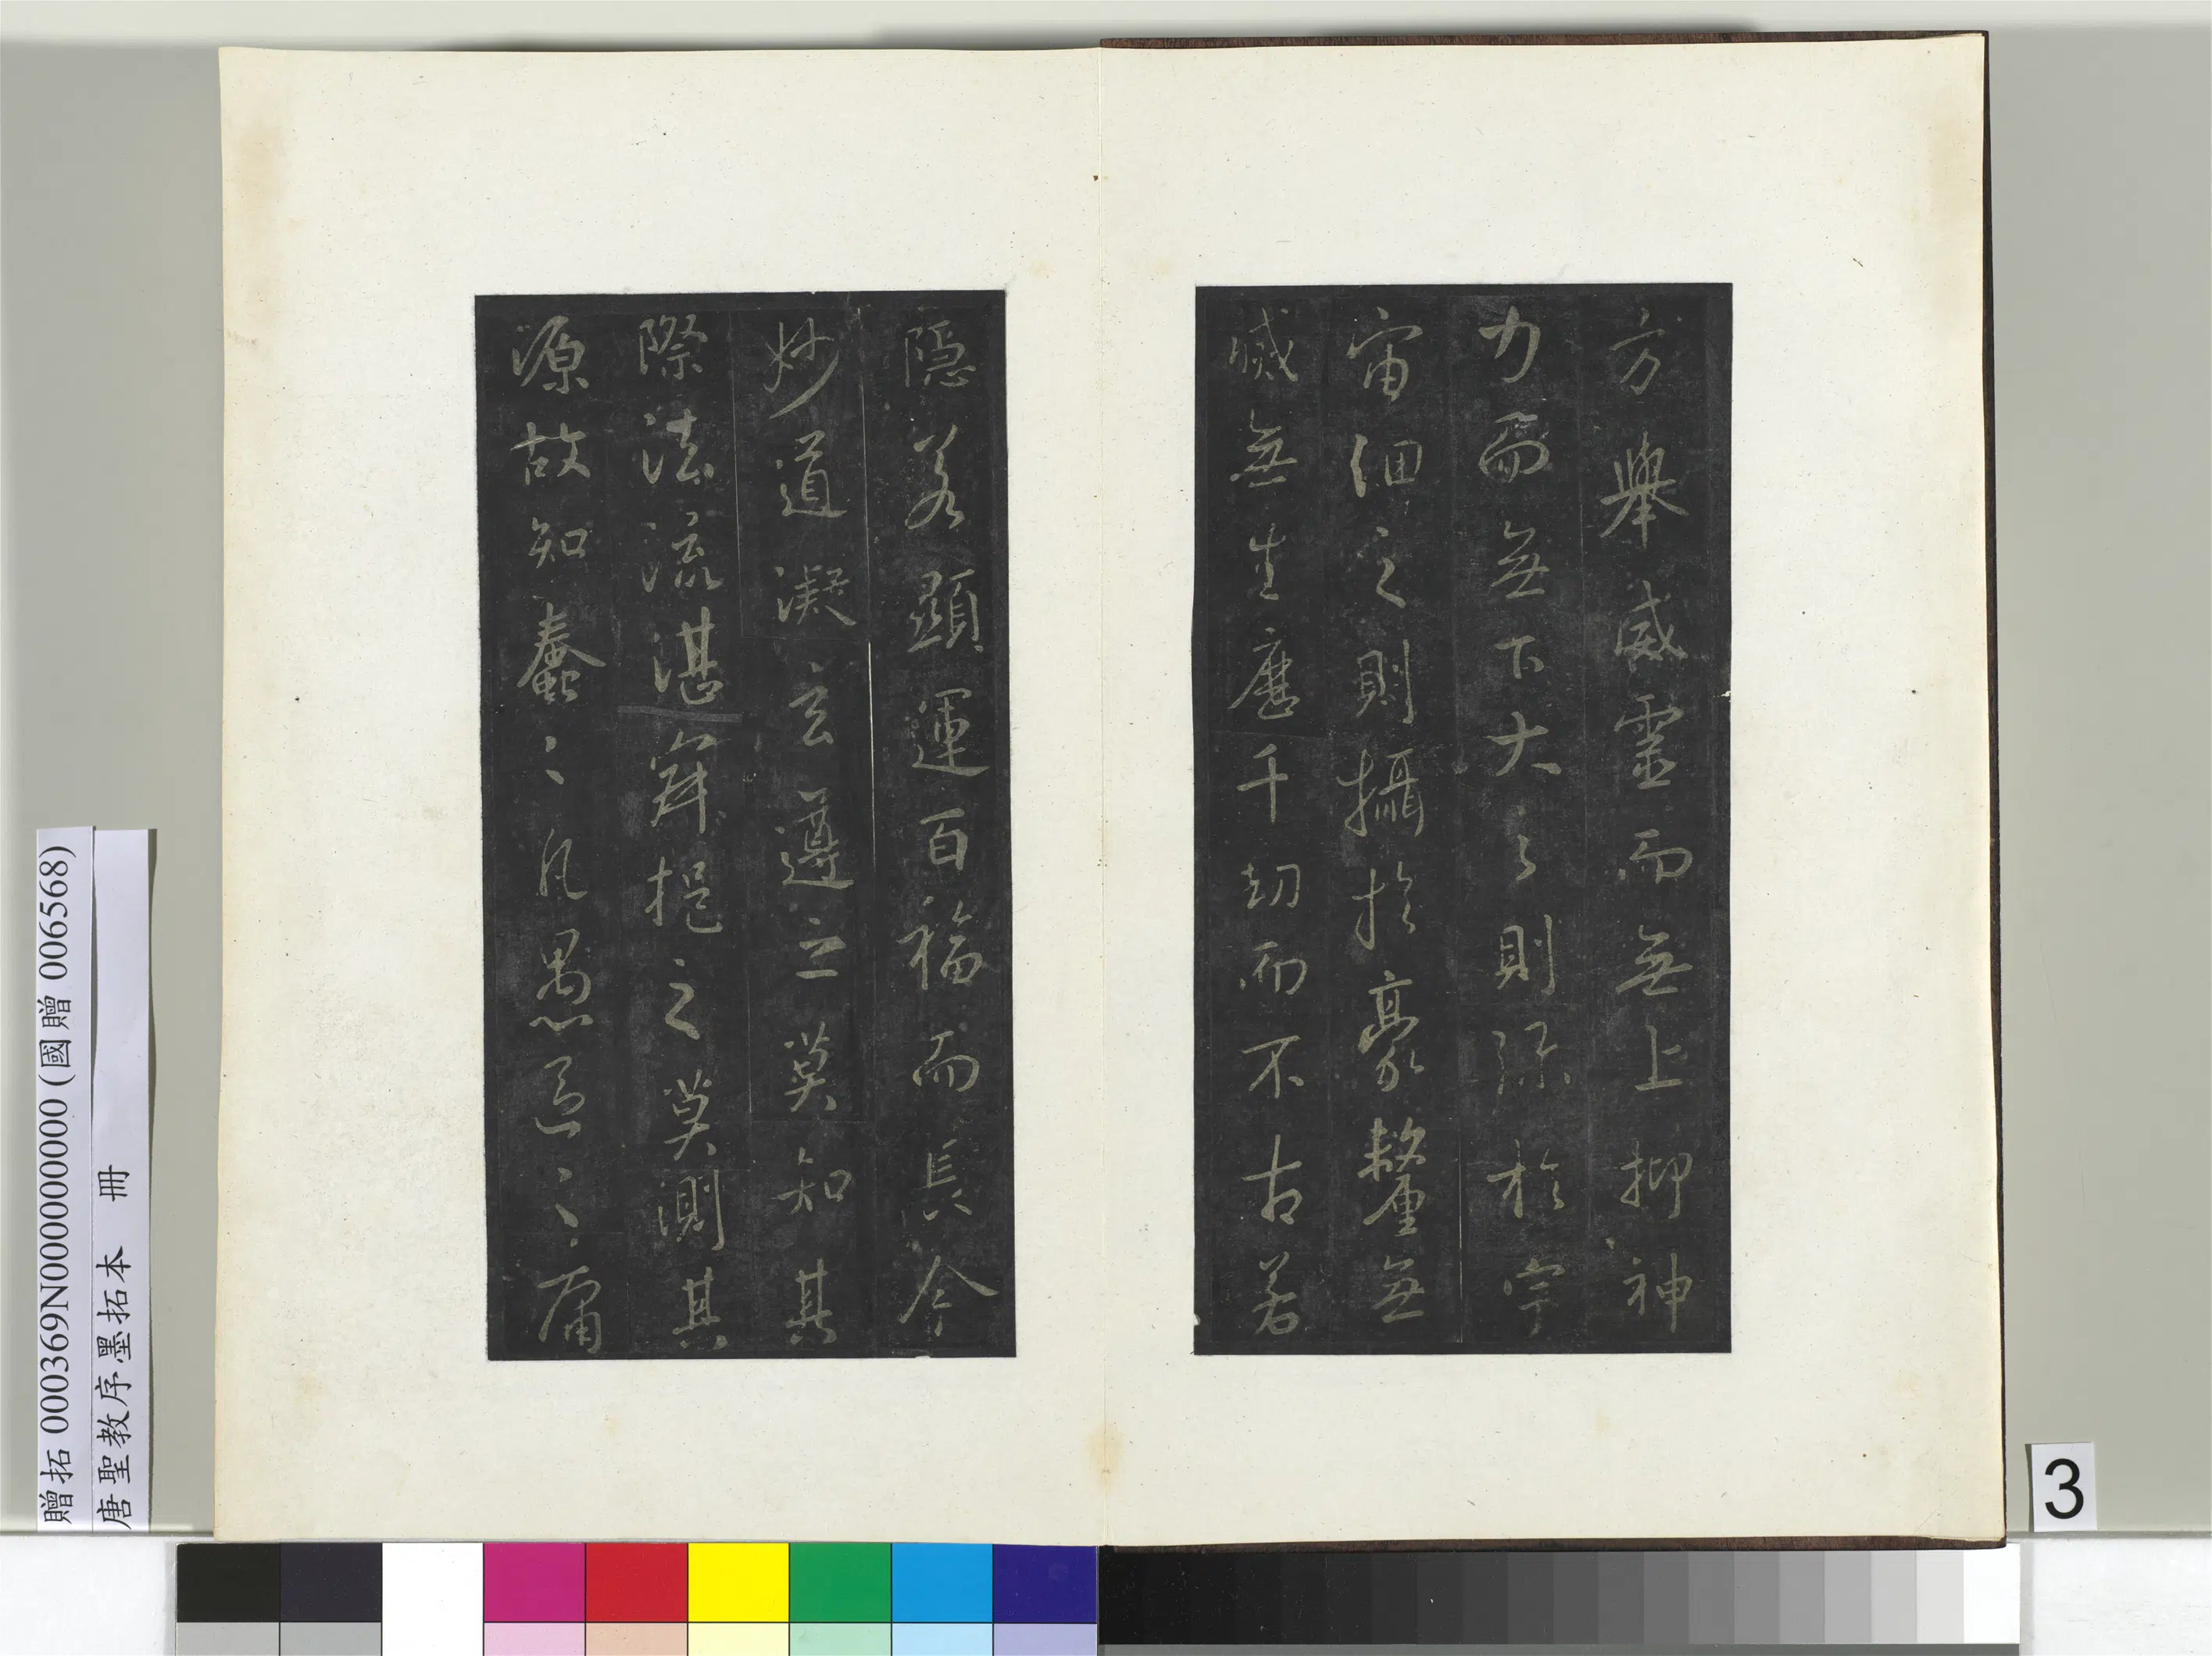 方舉威靈而無上抑神
力而無下大之則彌於宇
宙細之則攝於豪釐無
滅無生歷千劫而不古若
隱若顯運百福而長今
妙道凝玄遵之莫知其
際法流湛寂挹之莫測其
源故知蠢々凡愚區々庸
贈拓 000369N000000000 (國贈 006568)
唐聖教序墨拓本 冊
3